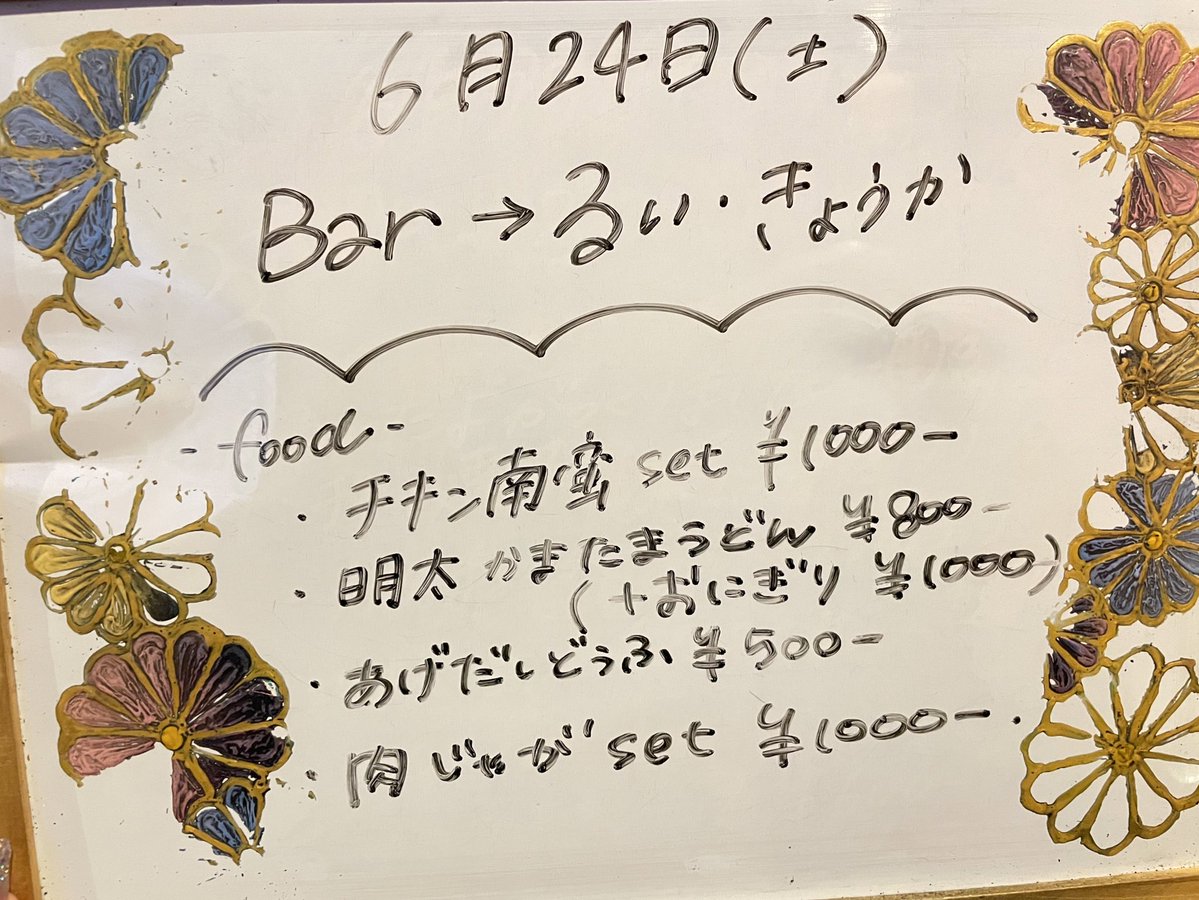 6月24日(土)
Bar→るい・きょうか
-food-
・チキン南蛮 set ¥1000-
・明太 かまたまうどん ¥800-
(+おにぎり ¥1000)
・あげだしどうふ ¥500-
・肉じゃが set ¥1000-.